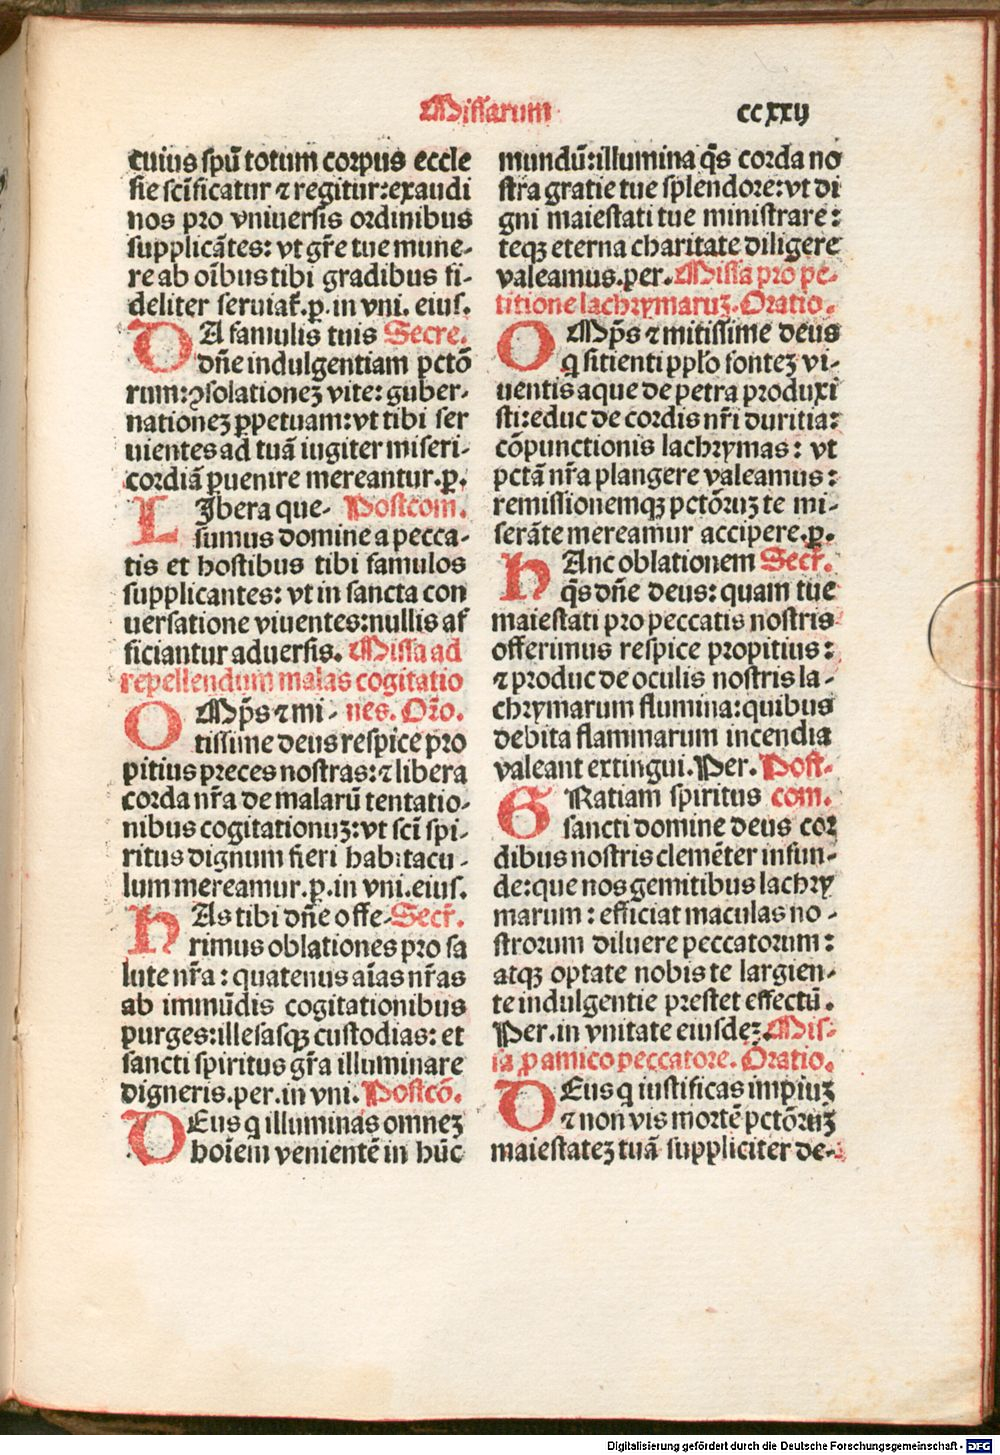 Missarum
ccxxij
cuius spū totum corpus eccle
sie scīficatur ⁊ regitur:exaudi
nos pro vniuersis ordinibus
supplicātes: vt gr̄e tue mune-
re ab oībus tibi gradibus fi-
deliter seruiat̄.p̲.in vni. eius.
DA famulis tuis Secre.
dn̄e indulgentiam pctō
rum:ꝯsolationeꝫ vite: guber-
nationeꝫ ꝑpetuam:vt tibi ser
uientes ad tuā iugiter miseri-
cordiā ꝑuenire mereantur.p̲.
LIbera que- Postcom.
sumus domine a pecca-
tis et hostibus tibi famulos
supplicantes: vt in sancta con
uersatione viuentes:nullis af
ficiantur aduersis. Missa ad
repellendum malas cogitatio
OMp̄s ⁊ mi- nes. Or̄o.
tissime deus respice pro
pitius preces nostras:⁊ libera
corda nr̄a de malarū tentatio-
nibus cogitationuꝫ:vt scī spi-
ritus dignum fieri habitacu-
lum mereamur.p̲.in vni.eius.
HAs tibi dn̄e offe- Secr̄.
rimus oblationes pro sa
lute nr̄a: quatenus aīas nr̄as
ab immūdis cogitationibus
purges:illesasqꝫ custodias: et
sancti spiritus gr̄a illuminare
digneris.per.in vni. Postcō.
DEus q̇ illuminas omneꝫ
hoīem venientē in hūc
mundū:illumina q̄s corda no
stra gratie tue splendore:vt di
gni maiestati tue ministrare:
teqꝫ eterna charitate diligere
valeamus.per. Missa pro pe-
titione lachrymaruꝫ. Oratio.
OMp̄s ⁊ mitissime deus
q̇ sitienti pplo fonteꝫ vi-
uentis aque de petra produxi
sti:educ de cordis nr̄i duritia:
cōpunctionis lachrymas: vt
pctā nr̄a plangere valeamus:
remissionemqꝫ pctōruꝫ te mi-
serāte mereamur accipere.p̲.
HAnc oblationem Secr̄.
q̄s dn̄e deus: quam tue
maiestati pro peccatis nostris
offerimus respice propitius:
⁊ produc de oculis nostris la-
chrymarum flumina:quibus
debita flammarum incendia
valeant extingui.Per. Post-
GRatiam spiritus com.
sancti domine deus cor
dibus nostris clemēter infun-
de:que nos gemitibus lachry
marum: efficiat maculas no-
strorum diluere peccatorum:
atqꝫ optate nobis te largien-
te indulgentie prestet effectū.
Per.in vnitate eiusdeꝫ. Mis-
sa ꝓ amico peccatore. Oratio.
DEus q̇ iustificas impiuꝫ
⁊ non vis mortē pctōruꝫ
maiestateꝫ tuā suppliciter de-
Digitalisierung gefördert durch die Deutsche Forschungsgemeinschaft - DFG